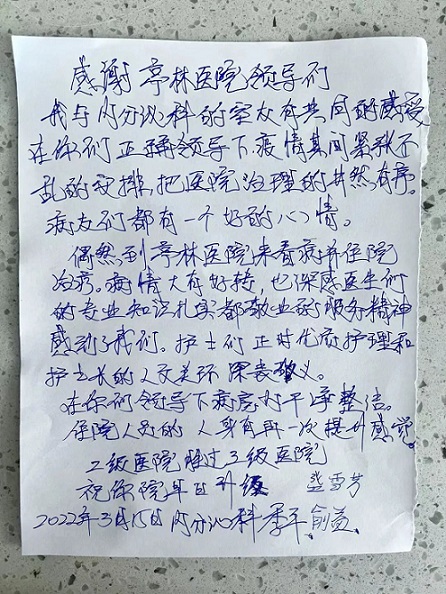 感谢亭林医院领导们
我与内分泌科的室友有共同的感受
在你们正确领导下疫情其间紧张不
乱的安排，把医院治理的井然有序。
病友们都有一个好的心情。
偶然到亭林医院来看病并住院
治疗。病情大有好转，也深感医生们
的专业知识扎实都敬业的服务精神
感到了我们。护士们正时优质护理和
护士长的人文关怀深表敬义。
在你们领导下病房打干净整洁。
住院人员的人身有再一次提升感觉
2级医院胜过3级医院
祝你院早日升级 盛雪芳
2022年3月15日内分泌科 季平